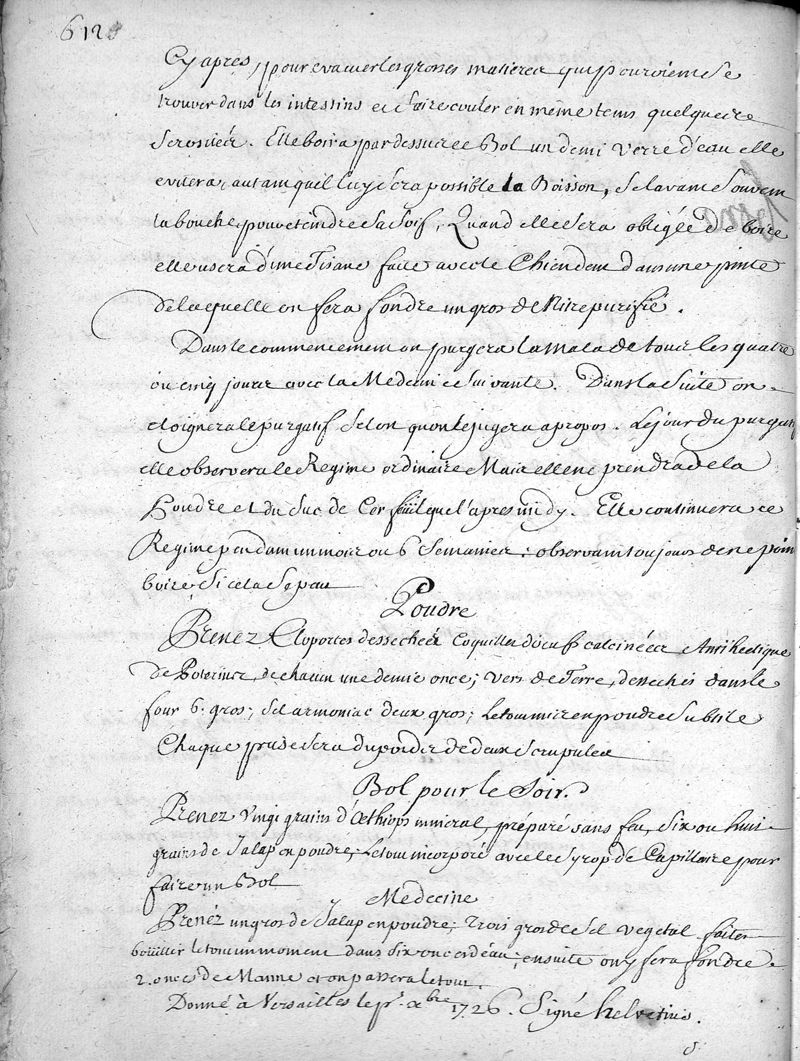 612
Cy apres, pour evacuer les grosses matieres qui pouroient se
trouver dans les intestins et faire couler en meme tems quelques
serositéz. Elle boira par dessus ce Bol un demi verre d'eau elle
evitera, autant quel luy sera possible la Boisson, se lavant souvent
la bouche pour eteindre sa soif, Quand elle sera obligée de boire
elle usera d'une Tisane faite avec le Chiendent dans une pinte
de laquelle on fera fondre un gros de Nitre purifié.
Dans le commencement on purgera la malade tous les quatre
ou cinq jours avec la Medecine suivante. Dans la suite on
eloignera le purgatif selon qu'on le jugera a propos. Le jour du purgatif
elle observera le Regime ordinaire Mais elle ne prendra de la
Poudre et du Suc de Cerfeuil que l'apres midy. Elle continuera ce
Regime pendant un mois ou 6 Semaines: observant toujours de ne point
boire si cela se peut
Poudre
Prenez Cloportes dessechéz Coquilles d'oeufs calcinéez Antihectique
de Poterius, de chacun une demie once; vers de Terre, dessechés dans le
four 6. gros; Sel armoniac deux gros; Le tout mis en poudre subtile
Chaque prise sera du poids de deux scrupules
Bol pour le Soir.
Prenez vingt grains d'Œthiops mineral, préparé sans feu, six ou huit
grains de Jalap en poudre, Le tout incorporé avec le Syrop de Capillaire pour
faire un Bol
Medecine
Prenéz un gros de Jalap en poudre; Trois gros de Sel vegetal faites
boüillir le tout un moment dans six onces d'eau; ensuite on y fera fondre
2. onces de Manne et on passera le tout.
Donné à Versailles le pr. Xbre 1726. Signé helvetius.